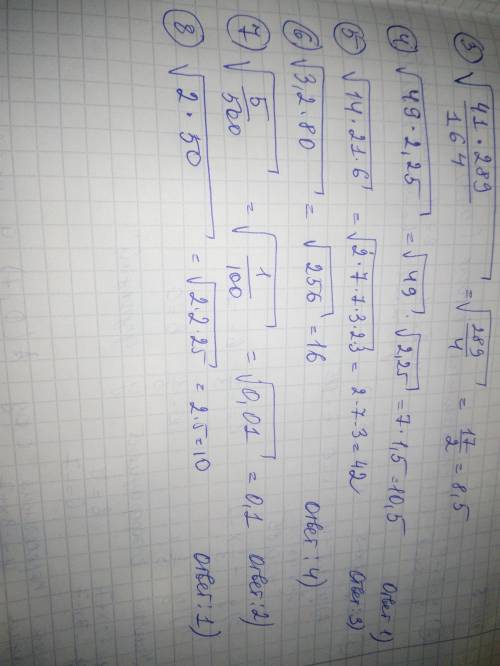 ③ √(41·289/164) = √(289/4) = 17/2 = 8,5
④ √(49·2,25) = √49·√2,25 = 7·1,5 = 10,5 Ответ 1)
⑤ √(14·21·6) = √(2·7·7·3·2·3) = 2·7·3 = 42 Ответ: 3)
⑥ √(3,2·80) = √256 = 16 Ответ: 4)
⑦ √(5/500) = √(1/100) = √0,01 = 0,1 Ответ: 2)
⑧ √(2·50) = √(2·2·25) = 2·5 = 10 Ответ: 1)